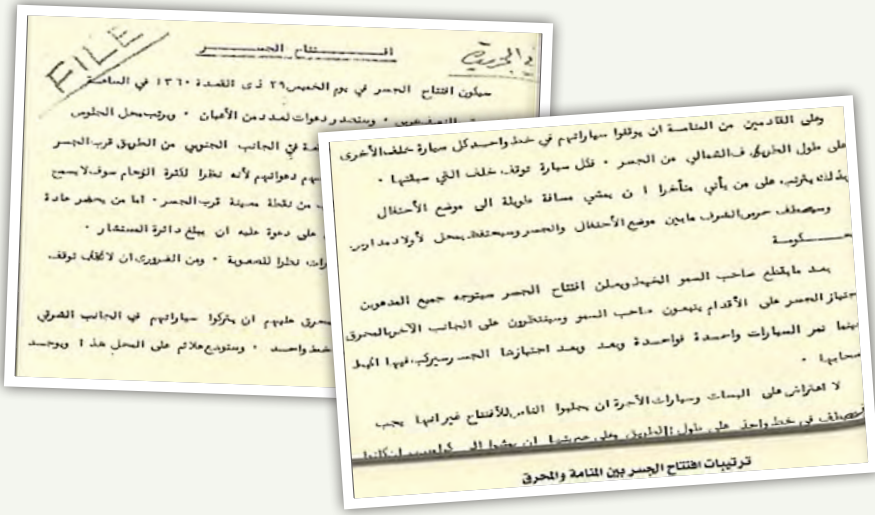 FILE
في الجريدة
افتتاح الجسر
سيكون افتتاح الجسر في يوم الخميس ٢٩ ذى القعدة ١٣٦٠ في الساعة
وستصدر دعوات لعدد من الأعيان ٠ ويرتب محل الجلوس
في الجانب الجنوبي من الطريق قرب الجسر
دعواتهم لأنه نظرا لكثرة الزحام سوف لا يسمح
من نقطة معينة قرب الجسر ٠ اما من يحضر عادة
على دعوة عليه ان يبلغ دائرة المستشار ٠
نظرا للصعوبة ٠ ومن الضرورى ان لا تقف توقف
عليهم ان يتركوا سياراتهم في الجانب الشرقي
خط واحد ٠ وستودع علائم على المحل هذا ويوجد
وعلى القادمين من المنامة ان يوقفوا سياراتهم في خط واحد كل سيارة خلف الأخرى
على طول الطريق في الشمالي من الجسر ٠ فكل سيارة توقف خلف التي سبقتها ٠
بذلك يترتب على من يأتي متأخرا ا ن يمشي مسافة طويلة الى موضع الأحتفال
وسيصطف حرس الشرف مابين موضع الأحتفال والجسر وسيحتفظ بمحل لأولاد مدارس
حكومة
بعد مايقطع صاحب السمو الخيط ويعلن افتتاح الجسر سيتوجه جميع المدعوين
اجتياز الجسر على الأقدام يتبعون صاحب السمو وسينتظرون على الجانب الآخر بالمحرق
بينما تمر السيارات واحدة فواحدة وبعد وبعد اجتيازها الجسر سيركب فيها
صحابها ٠
لا اعتراض على البسات وسيارات الأجرة ان يجلبوا الناس للأفتتاح غير انها يجب
تصطف في خط واحد على طول الطريق وعلى
ترتيبات افتتاح الجسر بين المنامة والمحرق